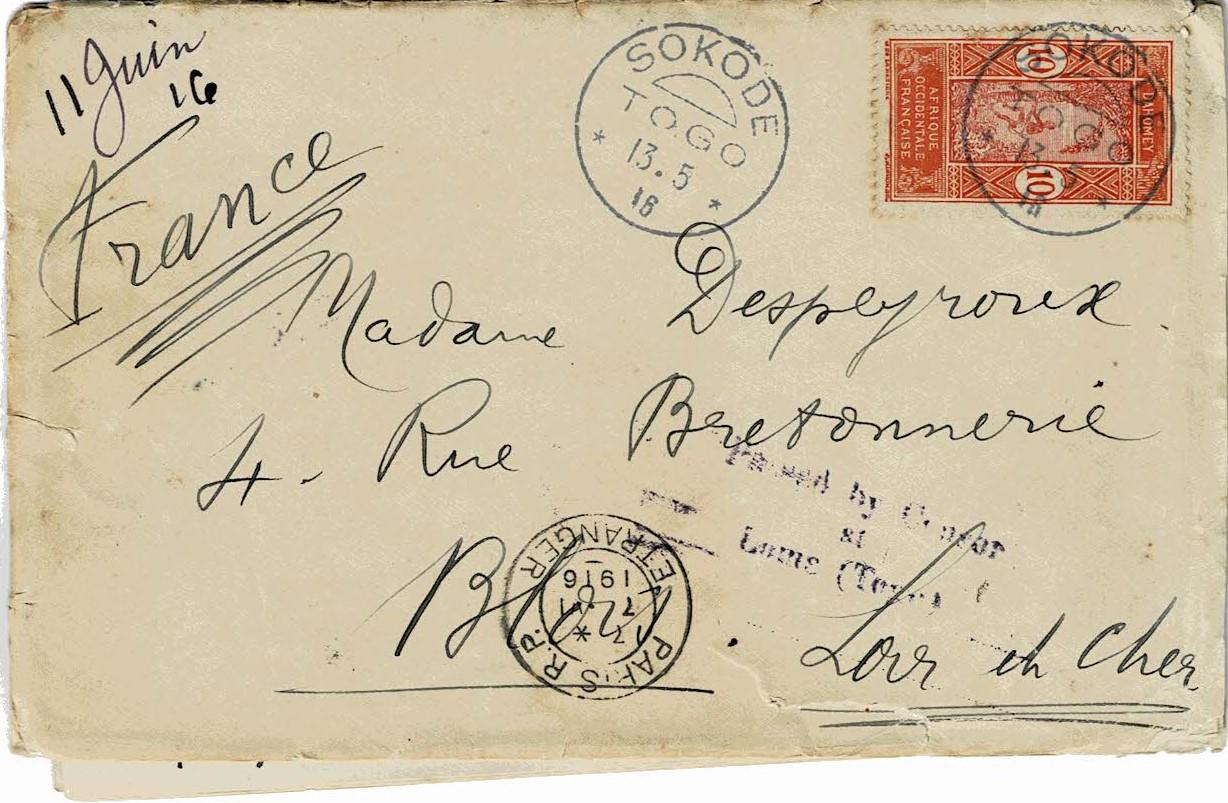 11 Juin
16
France
SOKODE
TOGO
13.5
16
AFRIQUE
OCCIDENTALE
FRANÇAISE
DAHOMEY
10
10
SOKODE
TOGO
13.5
16
Madame Despeyroux
4. Rue Bretonnerie
Passed by Censor
at
Lome (Togo)
PARIS R.P. ETRANGER
1916
Loir et Cher